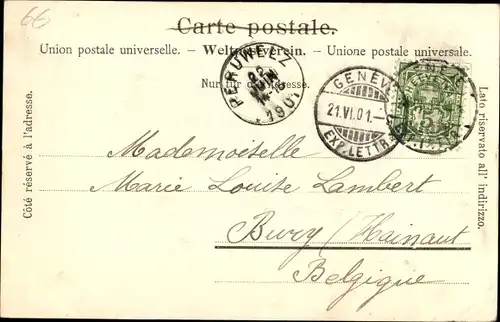 66
Carte postale.
Union postale universelle. - Weltpostverein. - Unione postale universale.
Nur für die Adresse.
PERUWELZ
22
JUIN
1901
GENÈVE
21.VI.01.-
EXP.LETTR.
5
Côté réservé à l'adresse.
Lato riservato all' indirizzo.
Mademoiselle
Marie Louise Lambert
Bury (Hainaut
Belgique